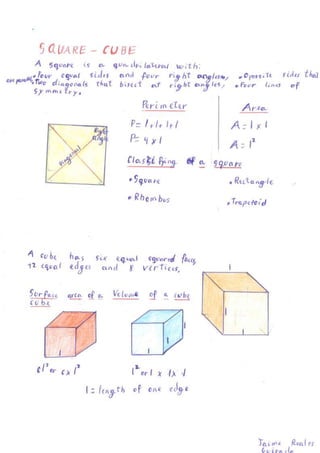 SQUARE - CUBE
A square is a quadrilateral with:
• Four equal sides and four right angles, • Opposite sides that
are parallel • Two diagonals that bisect at right angles, • Four lines of
symmetry.
Perimeter
Area
P= l+l+l+l
A= l x l
P= 4 x l
A= l²
Right
angle
Diagonal
Classifying of a square
• Square
• Rectangle
• Rhombus
• Trapezoid
A cube has six equal squared faces,
12 equal edges and 8 vertices.
Surface area of a
cube
Volume of a cube
l
l
l
l
l
l
6l² or 6 x l²
l³ or l x l x l
l = length of one edge
Jaime